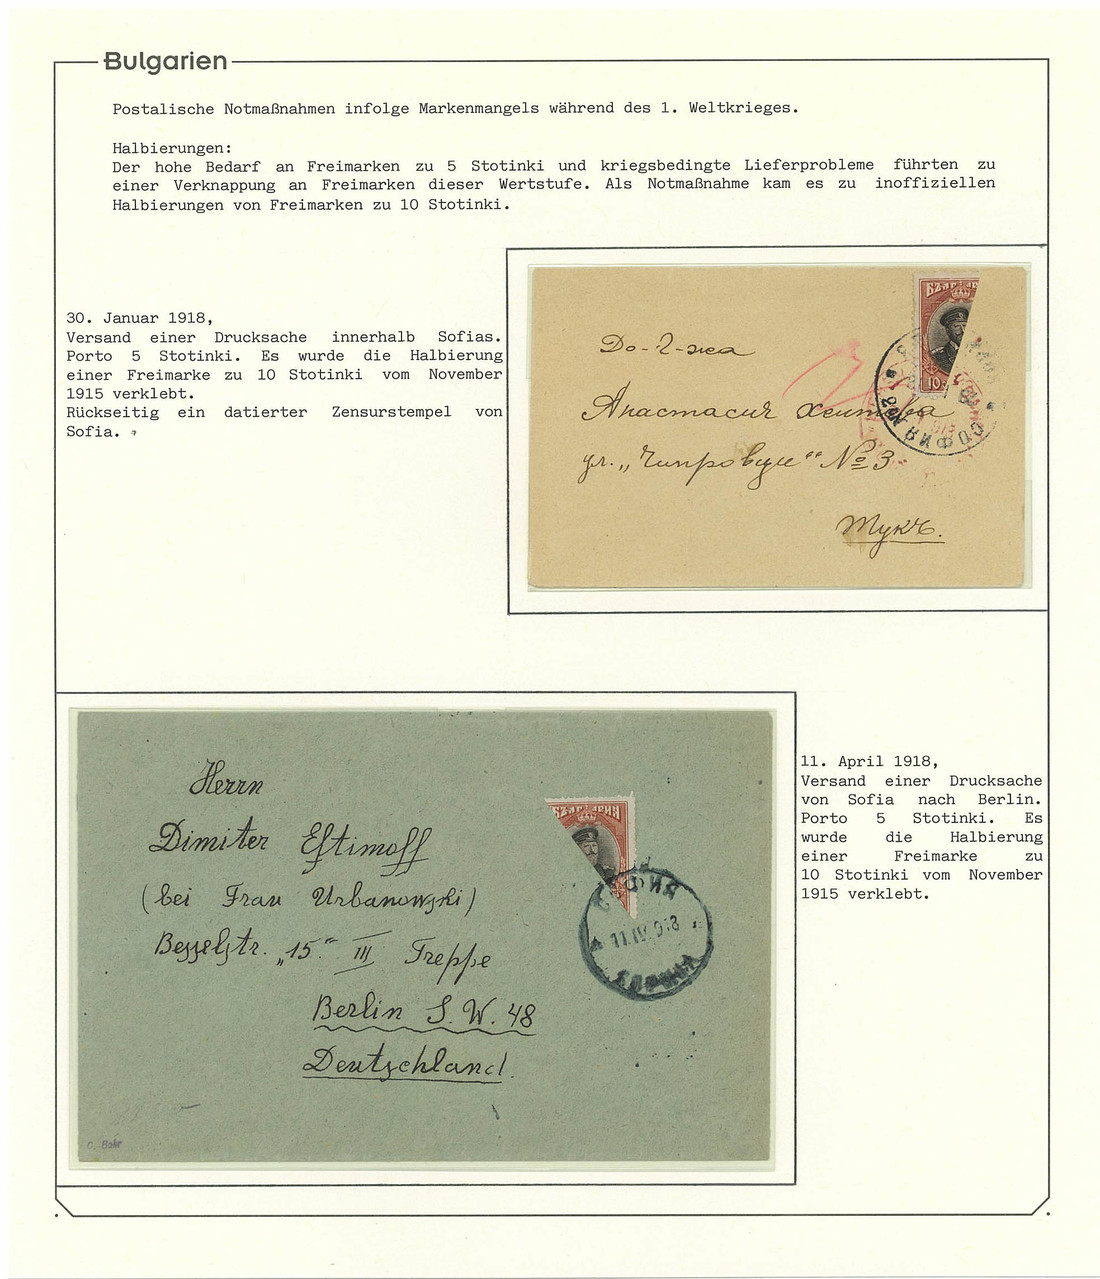 Bulgarien
Postalische Notmaßnahmen infolge Markenmangels während des 1. Weltkrieges.
Halbierungen:
Der hohe Bedarf an Freimarken zu 5 Stotinki und kriegsbedingte Lieferprobleme führten zu
einer Verknappung an Freimarken dieser Wertstufe. Als Notmaßnahme kam es zu inoffiziellen
Halbierungen von Freimarken zu 10 Stotinki.
30. Januar 1918,
Versand einer Drucksache innerhalb Sofias.
Porto 5 Stotinki. Es wurde die Halbierung
einer Freimarke zu 10 Stotinki vom November
1915 verklebt.
Rückseitig ein datierter Zensurstempel von
Sofia.
До-Г-жа
Анастасия
ул. „Чипровци“ № 3
Тукъ.
10
СОФИЯ
11. April 1918,
Versand einer Drucksache
von Sofia nach Berlin.
Porto 5 Stotinki. Es
wurde die Halbierung
einer Freimarke zu
10 Stotinki vom November
1915 verklebt.
Herrn
Dimiter Eftimoff
(bei Frau Urbanowski)
Besselstr. „15“ III Treppe
Berlin S. W. 48
Deutschland.
11.IV.918